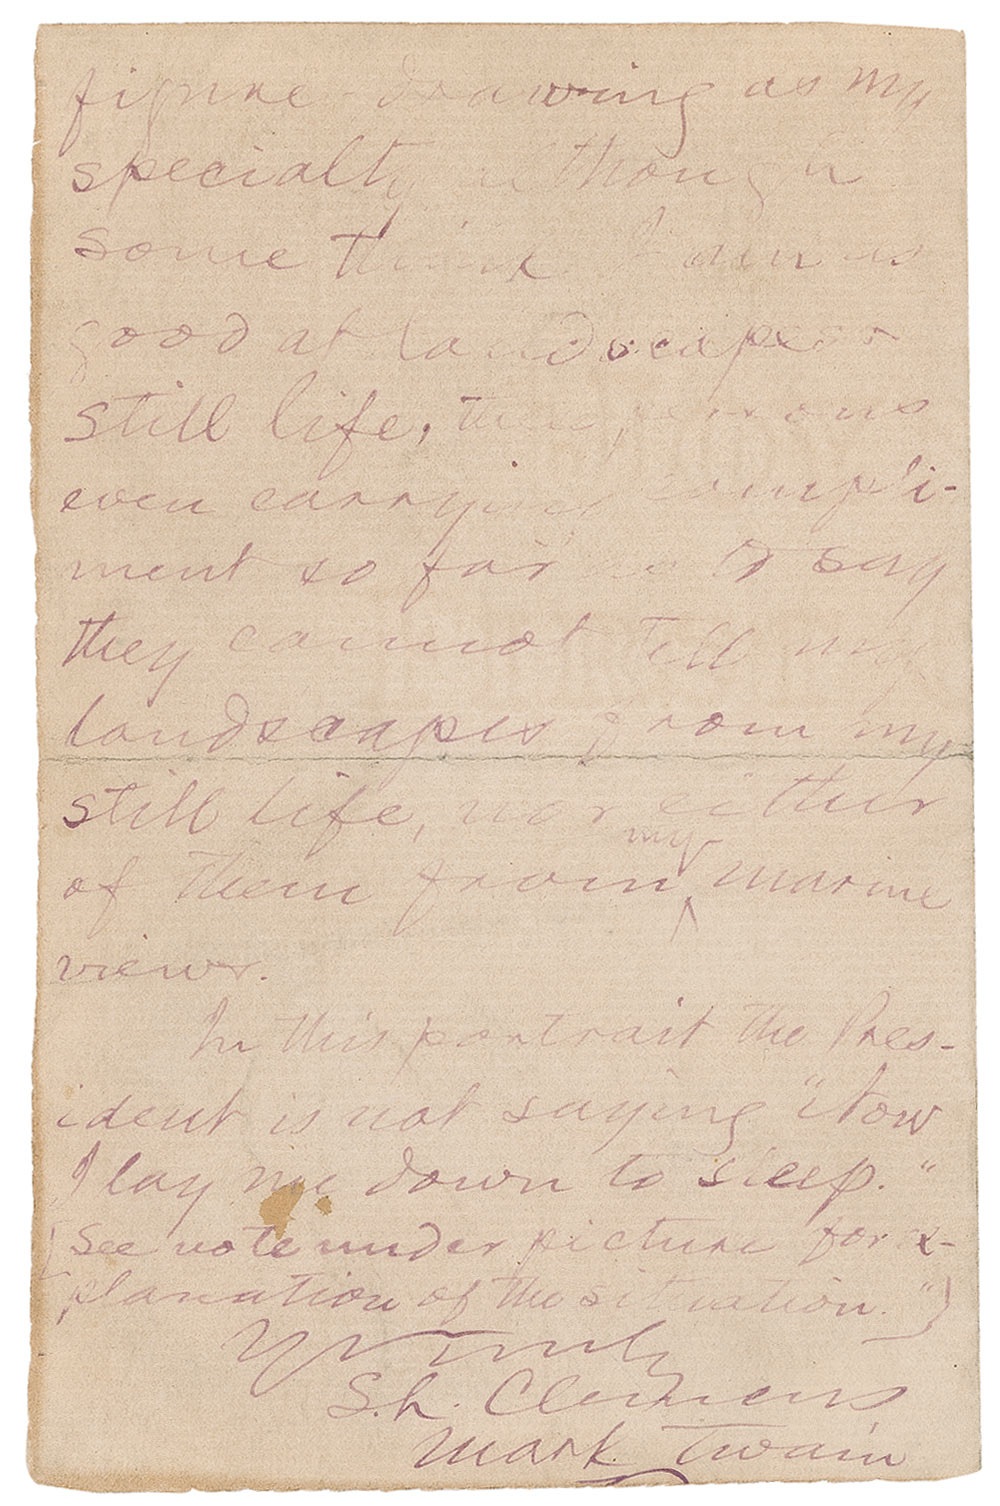 figure-drawing as my
specialty although
some think I am as
good at landscape or
still life, these persons
even carrying compli-
ment so far as to say
they cannot tell my
landscapes from my
still life, nor either
of them from my marine
views.
In this portrait the Pres-
ident is not saying "Now
I lay me down to sleep."
[See note under picture for ex-
planation of the situation."]
Yrs Truly
S.L. Clemens
Mark Twain